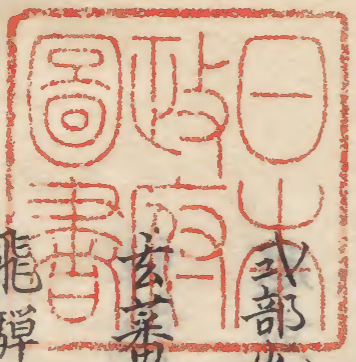 日本
政府
圖書
式部
玄蕃
飛騨